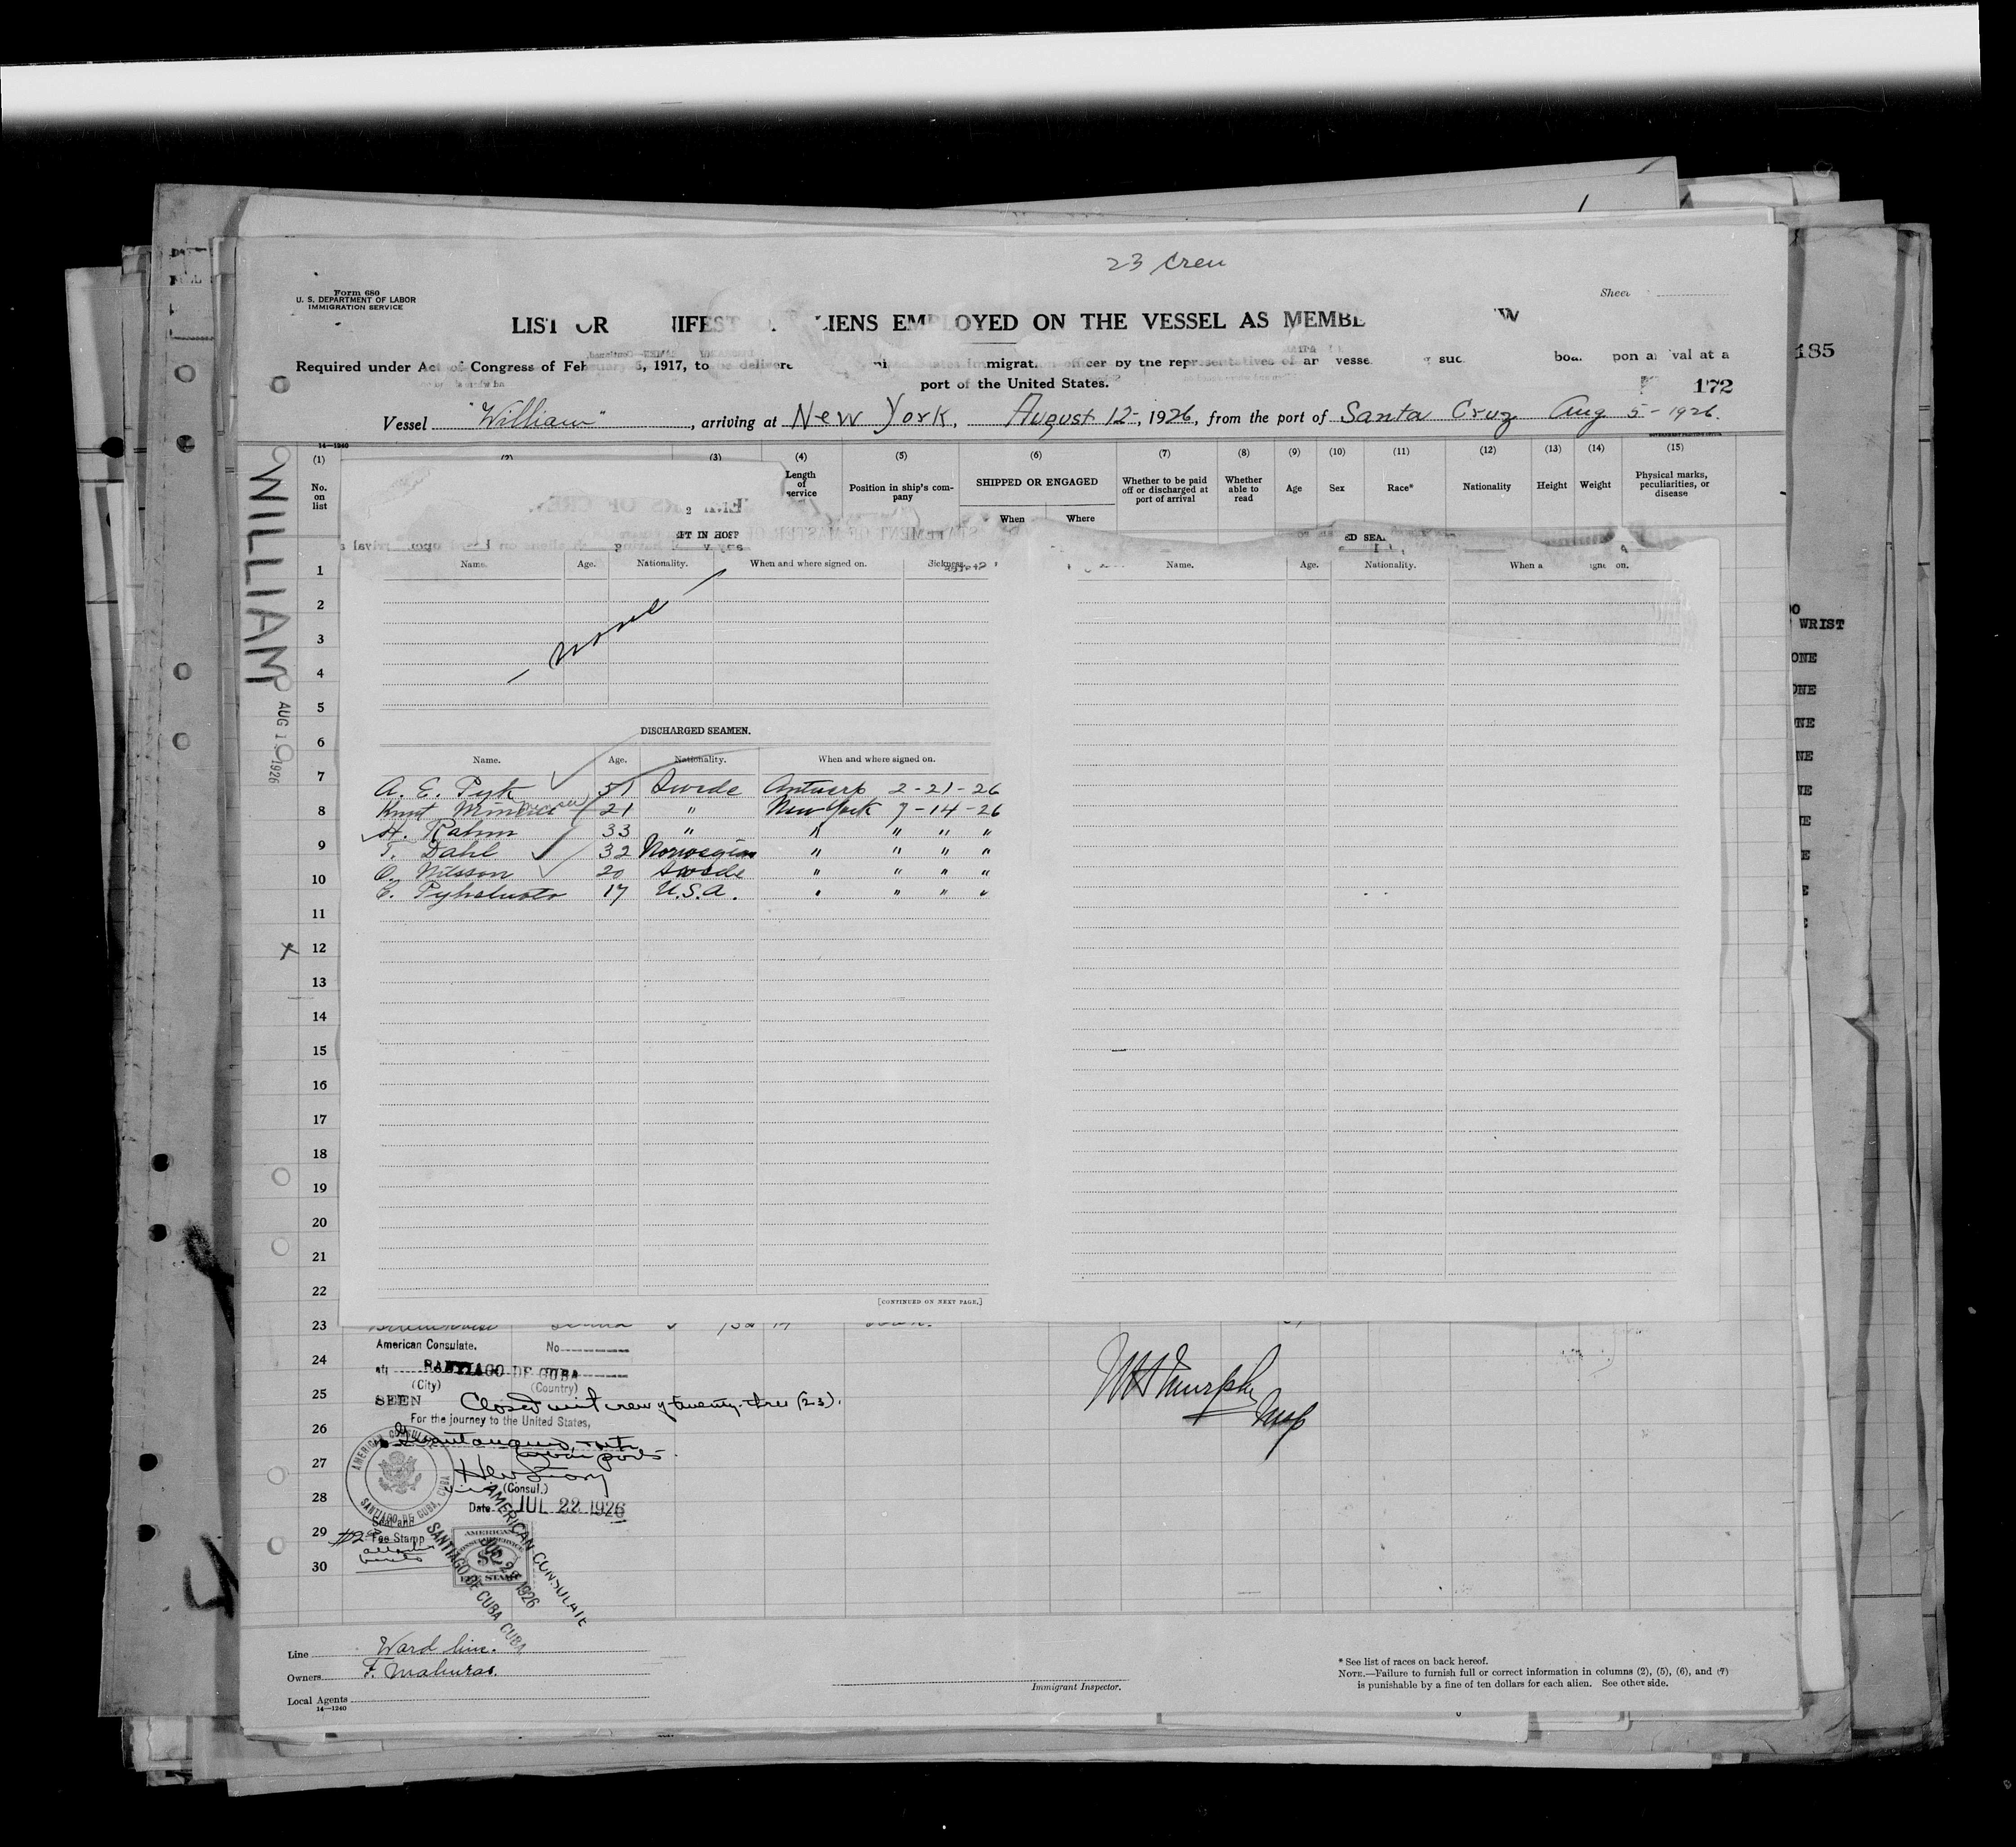 23 Crew
Form 680
U. S. DEPARTMENT OF LABOR
IMMIGRATION SERVICE
Sheet
LIST OR MANIFEST OF ALIENS EMPLOYED ON THE VESSEL AS MEMBE W
Required under Act of Congress of February 5, 1917, to be delivere United States immigration officer by the representatives of any vesse suc boa upon arrival at a
port of the United States.
185
172
Vessel "William", arriving at New York, August 12-, 1926, from the port of Santa Cruz Aug 5-1926.
14—1240
(1) (2) (3) (4) (5) (6) (7) (8) (9) (10) (11) (12) (13) (14) (15)
No. on list
Length of service
Position in ship's company
SHIPPED OR ENGAGED
When Where
Whether to be paid off or discharged at port of arrival
Whether able to read
Age
Sex
Race*
Nationality
Height
Weight
Physical marks, peculiarities, or disease
WILLIAM
AUG 1 1926
2
FT IN HOSP
ED SEA
Name. Age. Nationality. When and where signed on. Sickness.
Name. Age. Nationality. When a igne on.
— none —
DISCHARGED SEAMEN.
Name. Age. Nationality. When and where signed on.
A. E. Pyk 51 Swede Antwerp 2-21-26
Knut 21 " New York 7-14-26
H. Rahm 33 " " " " "
T. Dahl 32 Norwegian " " " "
O. Nilsson 20 Swede " " " "
C. 17 U.S.A. " " " "
[CONTINUED ON NEXT PAGE.]
1
2
3
4
5
6
7
8
9
10
11
12
13
14
15
16
17
18
19
20
21
22
23
24
25
26
27
28
29
30
WRIST
ONE
ONE
NE
NE
NE
E
E
E
American Consulate. No
at SANTIAGO DE CUBA
(City) (Country)
SEEN Closed with crew of twenty-three (23).
For the journey to the United States,
(Consul.)
Date JUL 22 1926
AMERICAN CONSULATE
SANTIAGO DE CUBA, CUBA
Seal and
Fee Stamp
AMERICAN
CONSULAR SERVICE
$2
FEE STAMP
AMERICAN CONSULATE
JUL 22 1926
SANTIAGO DE CUBA CUBA
Murphy
Line Ward line.
Owners
Local Agents
14—1240
Immigrant Inspector.
* See list of races on back hereof.
NOTE.—Failure to furnish full or correct information in columns (2), (5), (6), and (7)
is punishable by a fine of ten dollars for each alien. See other side.